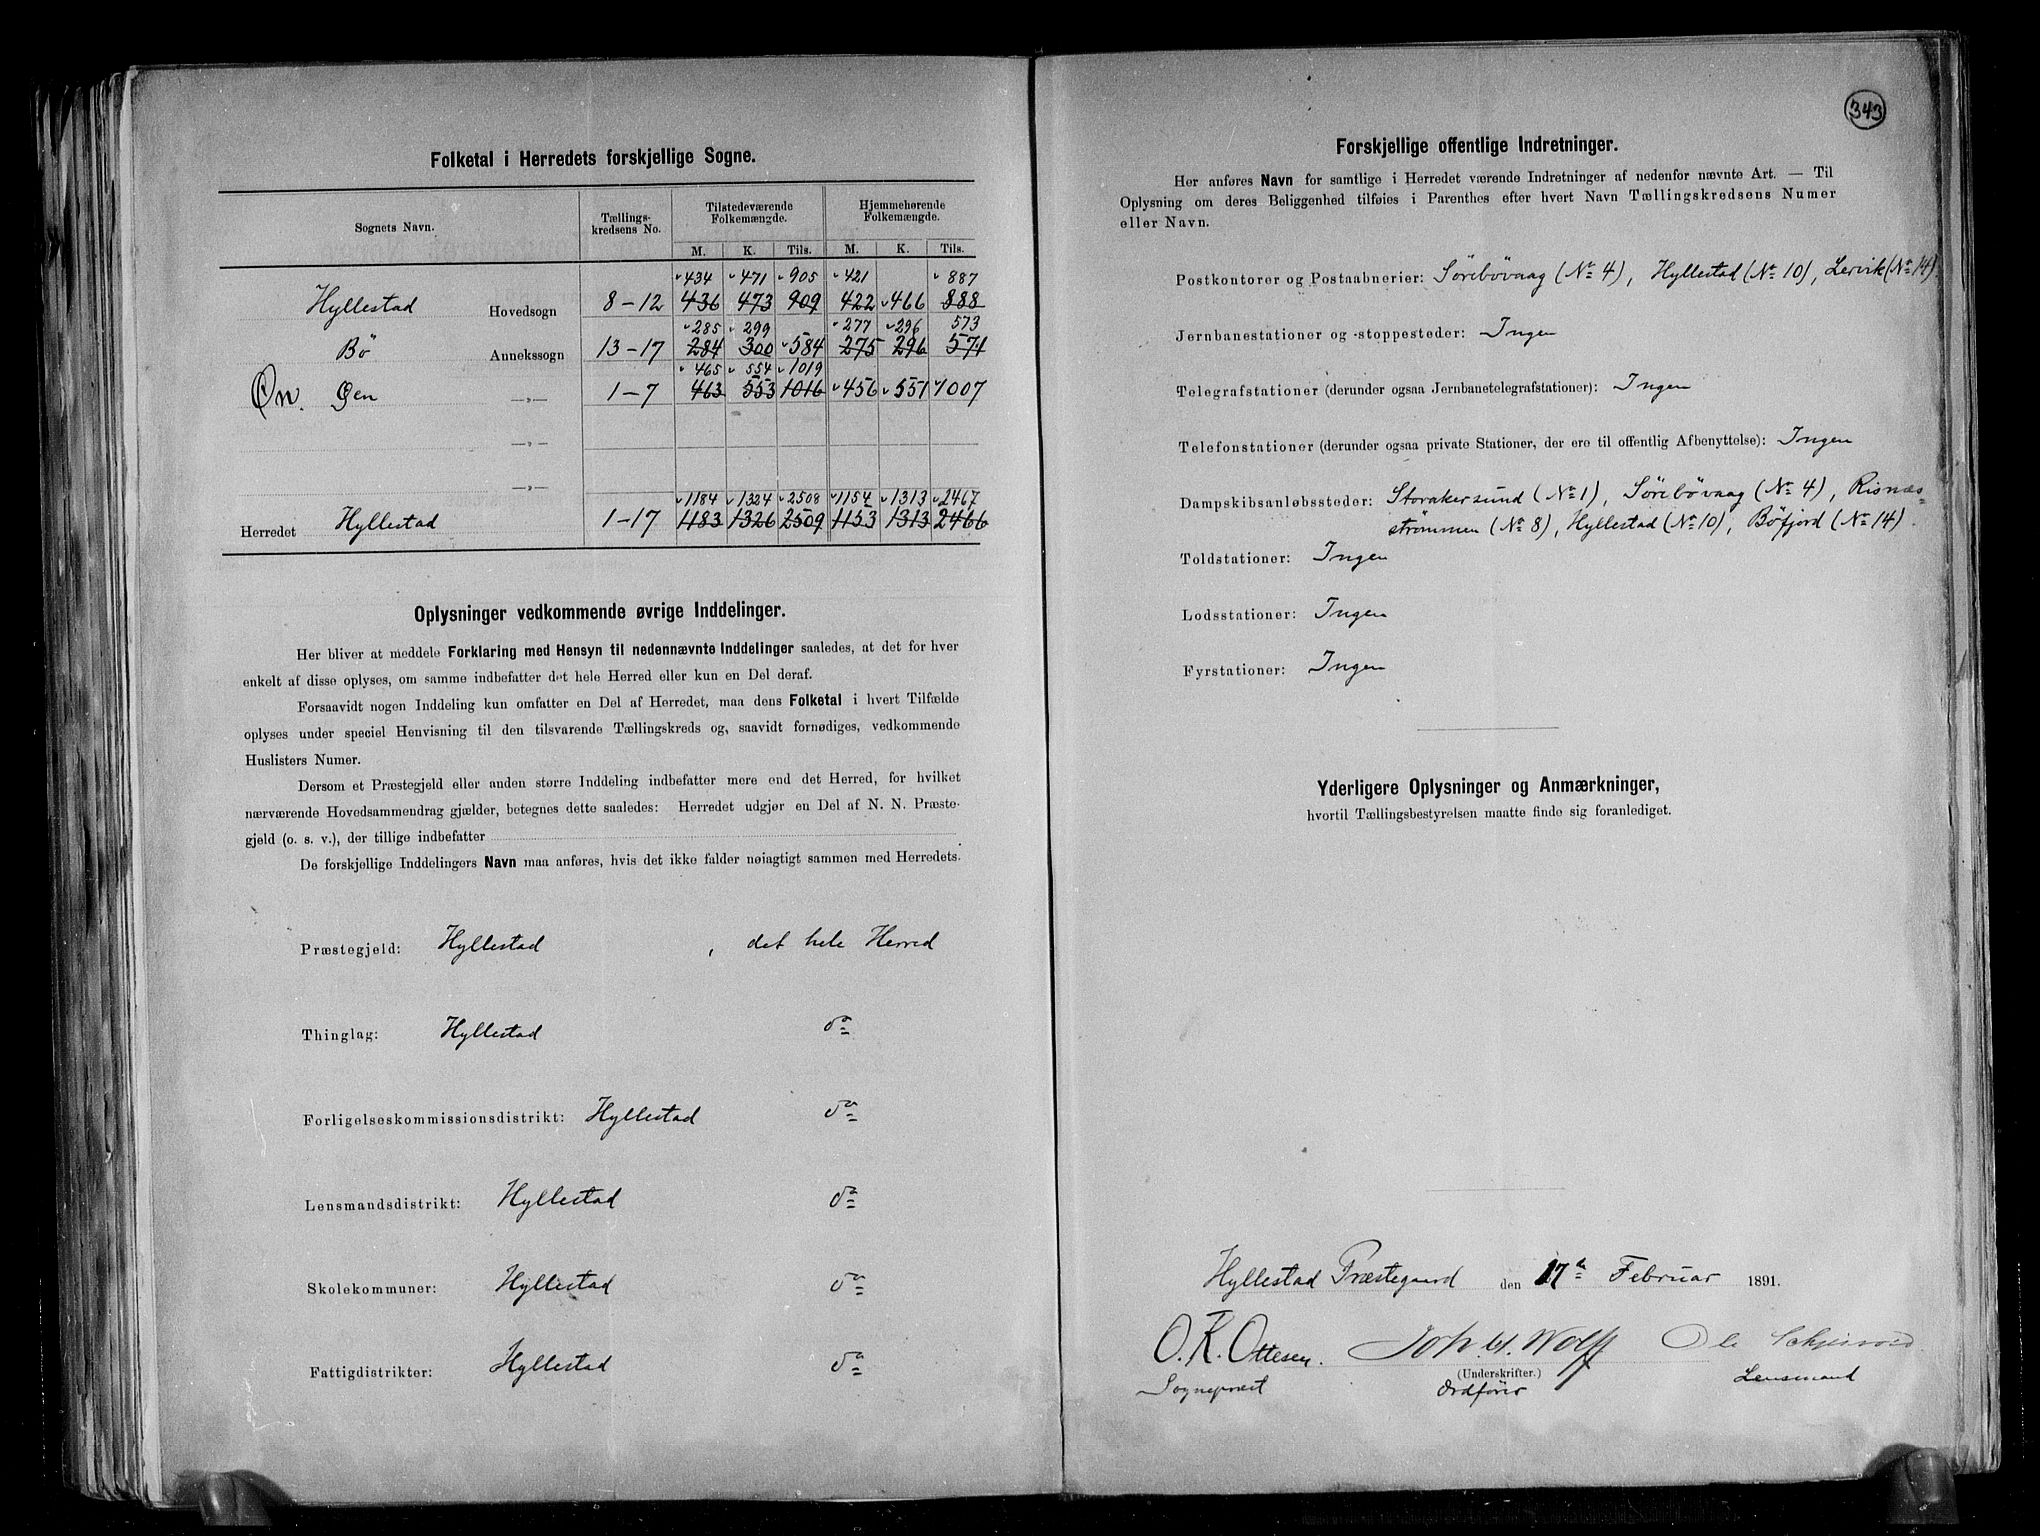 Folketal i Herredets forskjellige Sogne.
Sognets Navn. Tællings-kredsens No. Tilstedeværende Folkemængde. Hjemmehørende Folkemængde.
M. K. Tils. M. K. Tils.
434 471 905 421 887
Hyllestad Hovedsogn 8-12 436 473 909 422 466 888
285 299 277 296 573
Bö Annekssogn 13-17 284 300 584 275 296 571
465 554 1019
Øn. Øen —„— 1-7 463 553 1016 456 551 1007
—„—
—„—
1184 1324 2508 1154 1313 2467
Herredet Hyllestad 1-17 1183 1326 2509 1153 1313 2466
Oplysninger vedkommende øvrige Inddelinger.
Her bliver at meddele Forklaring med Hensyn til nedennævnte Inddelinger saaledes, at det for hver
enkelt af disse oplyses, om samme indbefatter det hele Herred eller kun en Del deraf.
Forsaavidt nogen Inddeling kun omfatter en Del af Herredet, maa dens Folketal i hvert Tilfælde
oplyses under speciel Henvisning til den tilsvarende Tællingskreds og, saavidt fornødiges, vedkommende
Huslisters Numer.
Dersom et Præstegjeld eller anden større Inddeling indbefatter mere end det Herred, for hvilket
nærværende Hovedsammendrag gjælder, betegnes dette saaledes: Herredet udgjør en Del af N. N. Præste-
gjeld (o. s. v.), der tillige indbefatter
De forskjellige Inddelingers Navn maa anføres, hvis det ikke falder nøiagtigt sammen med Herredets.
Præstegjeld: Hyllestad , det hele Herred
Thinglag: Hyllestad do
Forligelseskommissionsdistrikt: Hyllestad do
Lensmandsdistrikt: Hyllestad do
Skolekommuner: Hyllestad do
Fattigdistrikter: Hyllestad do
343
Forskjellige offentlige Indretninger.
Her anføres Navn for samtlige i Herredet værende Indretninger af nedenfor nævnte Art. — Til
Oplysning om deres Beliggenhed tilføies i Parenthes efter hvert Navn Tællingskredsens Numer
eller Navn.
Postkontorer og Postaabnerier: Sörebövaag (No 4), Hyllestad (No 10), Lervik (No 14)
Jernbanestationer og -stoppesteder: Ingen
Telegrafstationer (derunder ogsaa Jernbanetelegrafstationer): Ingen
Telefonstationer (derunder ogsaa private Stationer, der ere til offentlig Afbenyttelse): Ingen
Dampskibsanløbssteder: Storakersund (No 1), Sörebövaag (No 4), Risnæs-
strömmen (No 8), Hyllestad (No 10), Böfjord (No 14).
Toldstationer: Ingen
Lodsstationer: Ingen
Fyrstationer: Ingen
Yderligere Oplysninger og Anmærkninger,
hvortil Tællingsbestyrelsen maatte finde sig foranlediget.
Hyllestad Præstegaard den 17de Februar 1891.
O. K. Ottesen. Joh. Wolff Ole
(Underskrifter.)
Sognepræst Ordförer Lensmand